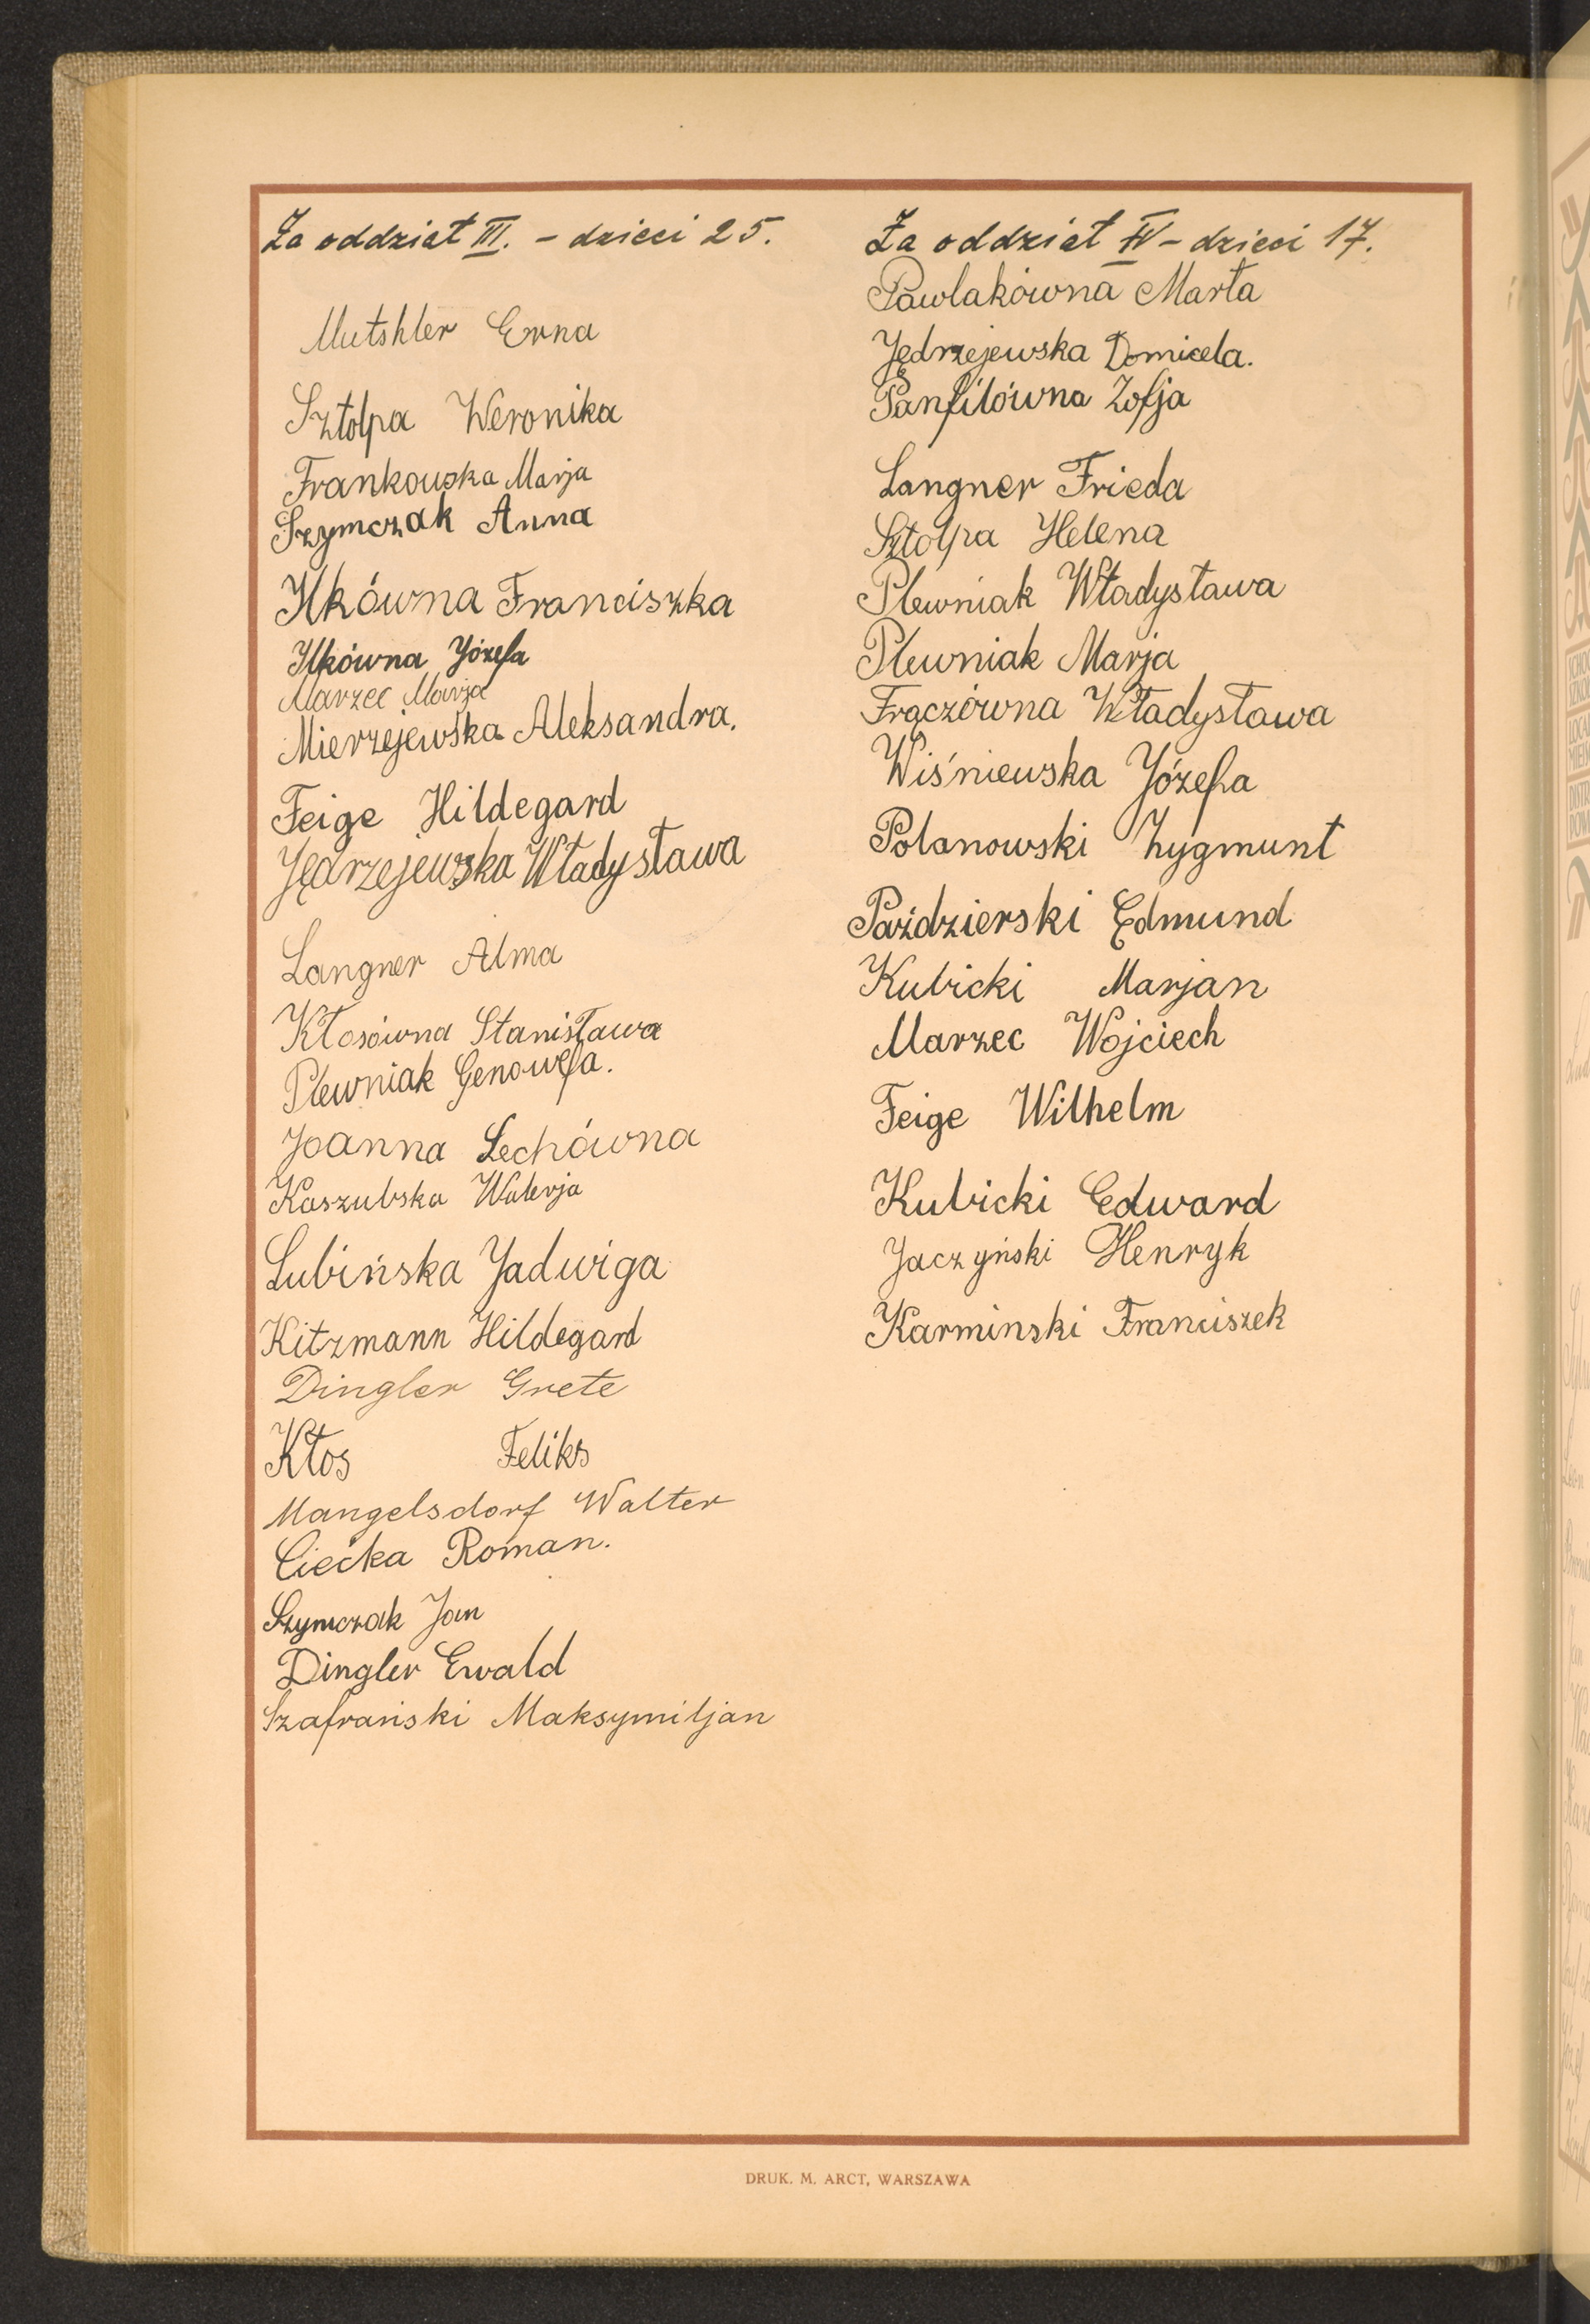 Za oddział III. – dzieci 25.
Mutshler Erna
Sztolpa Weronika
Frankowska Marja
Szymczak Anna
Ilkówna Franciszka
Ilkówna Józefa
Marzec Marja
Mierzejewska Aleksandra.
Feige Hildegard
Jędrzejewska Władysława
Langner Alma
Kłosówna Stanisława
Plewniak Genowefa.
Joanna Lechówna
Kaszubska Walerja
Lubińska Jadwiga
Kitzmann Hildegard
Dingler Grete
Kłos Feliks
Mangelsdorf Walter
Ciećka Roman.
Szymczak Jan
Dingler Ewald
Szafrański Maksymiljan
Za oddział IV – dzieci 17.
Pawlakówna Marta
Jędrzejewska Domicela.
Panfilówna Zofja
Langner Frieda
Sztolpa Helena
Plewniak Władysława
Plewniak Marja
Frączówna Władysława
Wiśniewska Józefa
Polanowski Zygmunt
Paździerski Edmund
Kubicki Marjan
Marzec Wojciech
Feige Wilhelm
Kubicki Edward
Jaczyński Henryk
Karminski Franciszek
DRUK. M. ARCT, WARSZAWA